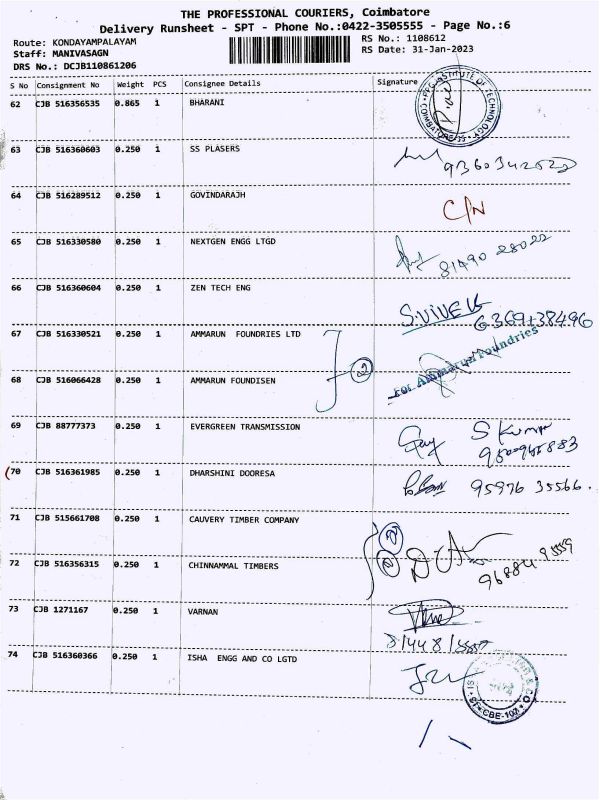 THE PROFESSIONAL COURIERS, Coimbatore
Delivery Runsheet - SPT - Phone No.:0422-3505555 - Page No.:6
Route: KONDAYAMPALAYAM RS No.: 1108612
Staff: MANIVASAGN RS Date: 31-Jan-2023
DRS No.: DCJB110861206
S No Consignment No Weight PCS Consignee Details Signature
62 CJB 516356535 0.865 1 BHARANI
63 CJB 516360603 0.250 1 SS PLASERS
64 CJB 516289512 0.250 1 GOVINDARAJH C/N
65 CJB 516330580 0.250 1 NEXTGEN ENGG LTGD
81490 28022
66 CJB 516360604 0.250 1 ZEN TECH ENG S.VIVEK
67 CJB 516330521 0.250 1 AMMARUN FOUNDRIES LTD
For Ammarun Foundries
68 CJB 516066428 0.250 1 AMMARUN FOUNDISEN
69 CJB 88777373 0.250 1 EVERGREEN TRANSMISSION S Kumar
70 CJB 516361985 0.250 1 DHARSHINI DOORESA 95976 35566.
71 CJB 515661708 0.250 1 CAUVERY TIMBER COMPANY
72 CJB 516356315 0.250 1 CHINNAMMAL TIMBERS 96884 9559
73 CJB 1271167 0.250 1 VARNAN
74 CJB 516360366 0.250 1 ISHA ENGG AND CO LGTD